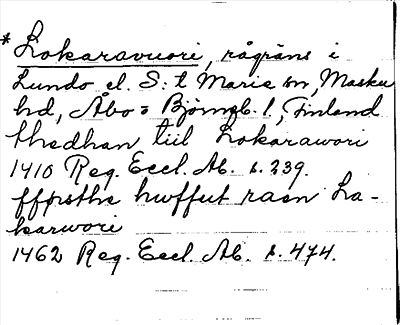 *Lokaravuori, rågräns i
Lundo el. S:t Marie sn, Masku
hd, Åbo = Björneb. l., Finland
thedhan tiil Lokarawori
1410 Reg. Eccl. Ab. s. 239.
fførsthe hwffut raen Lo-
karwori
1462 Reg. Eccl. Ab. s. 474.